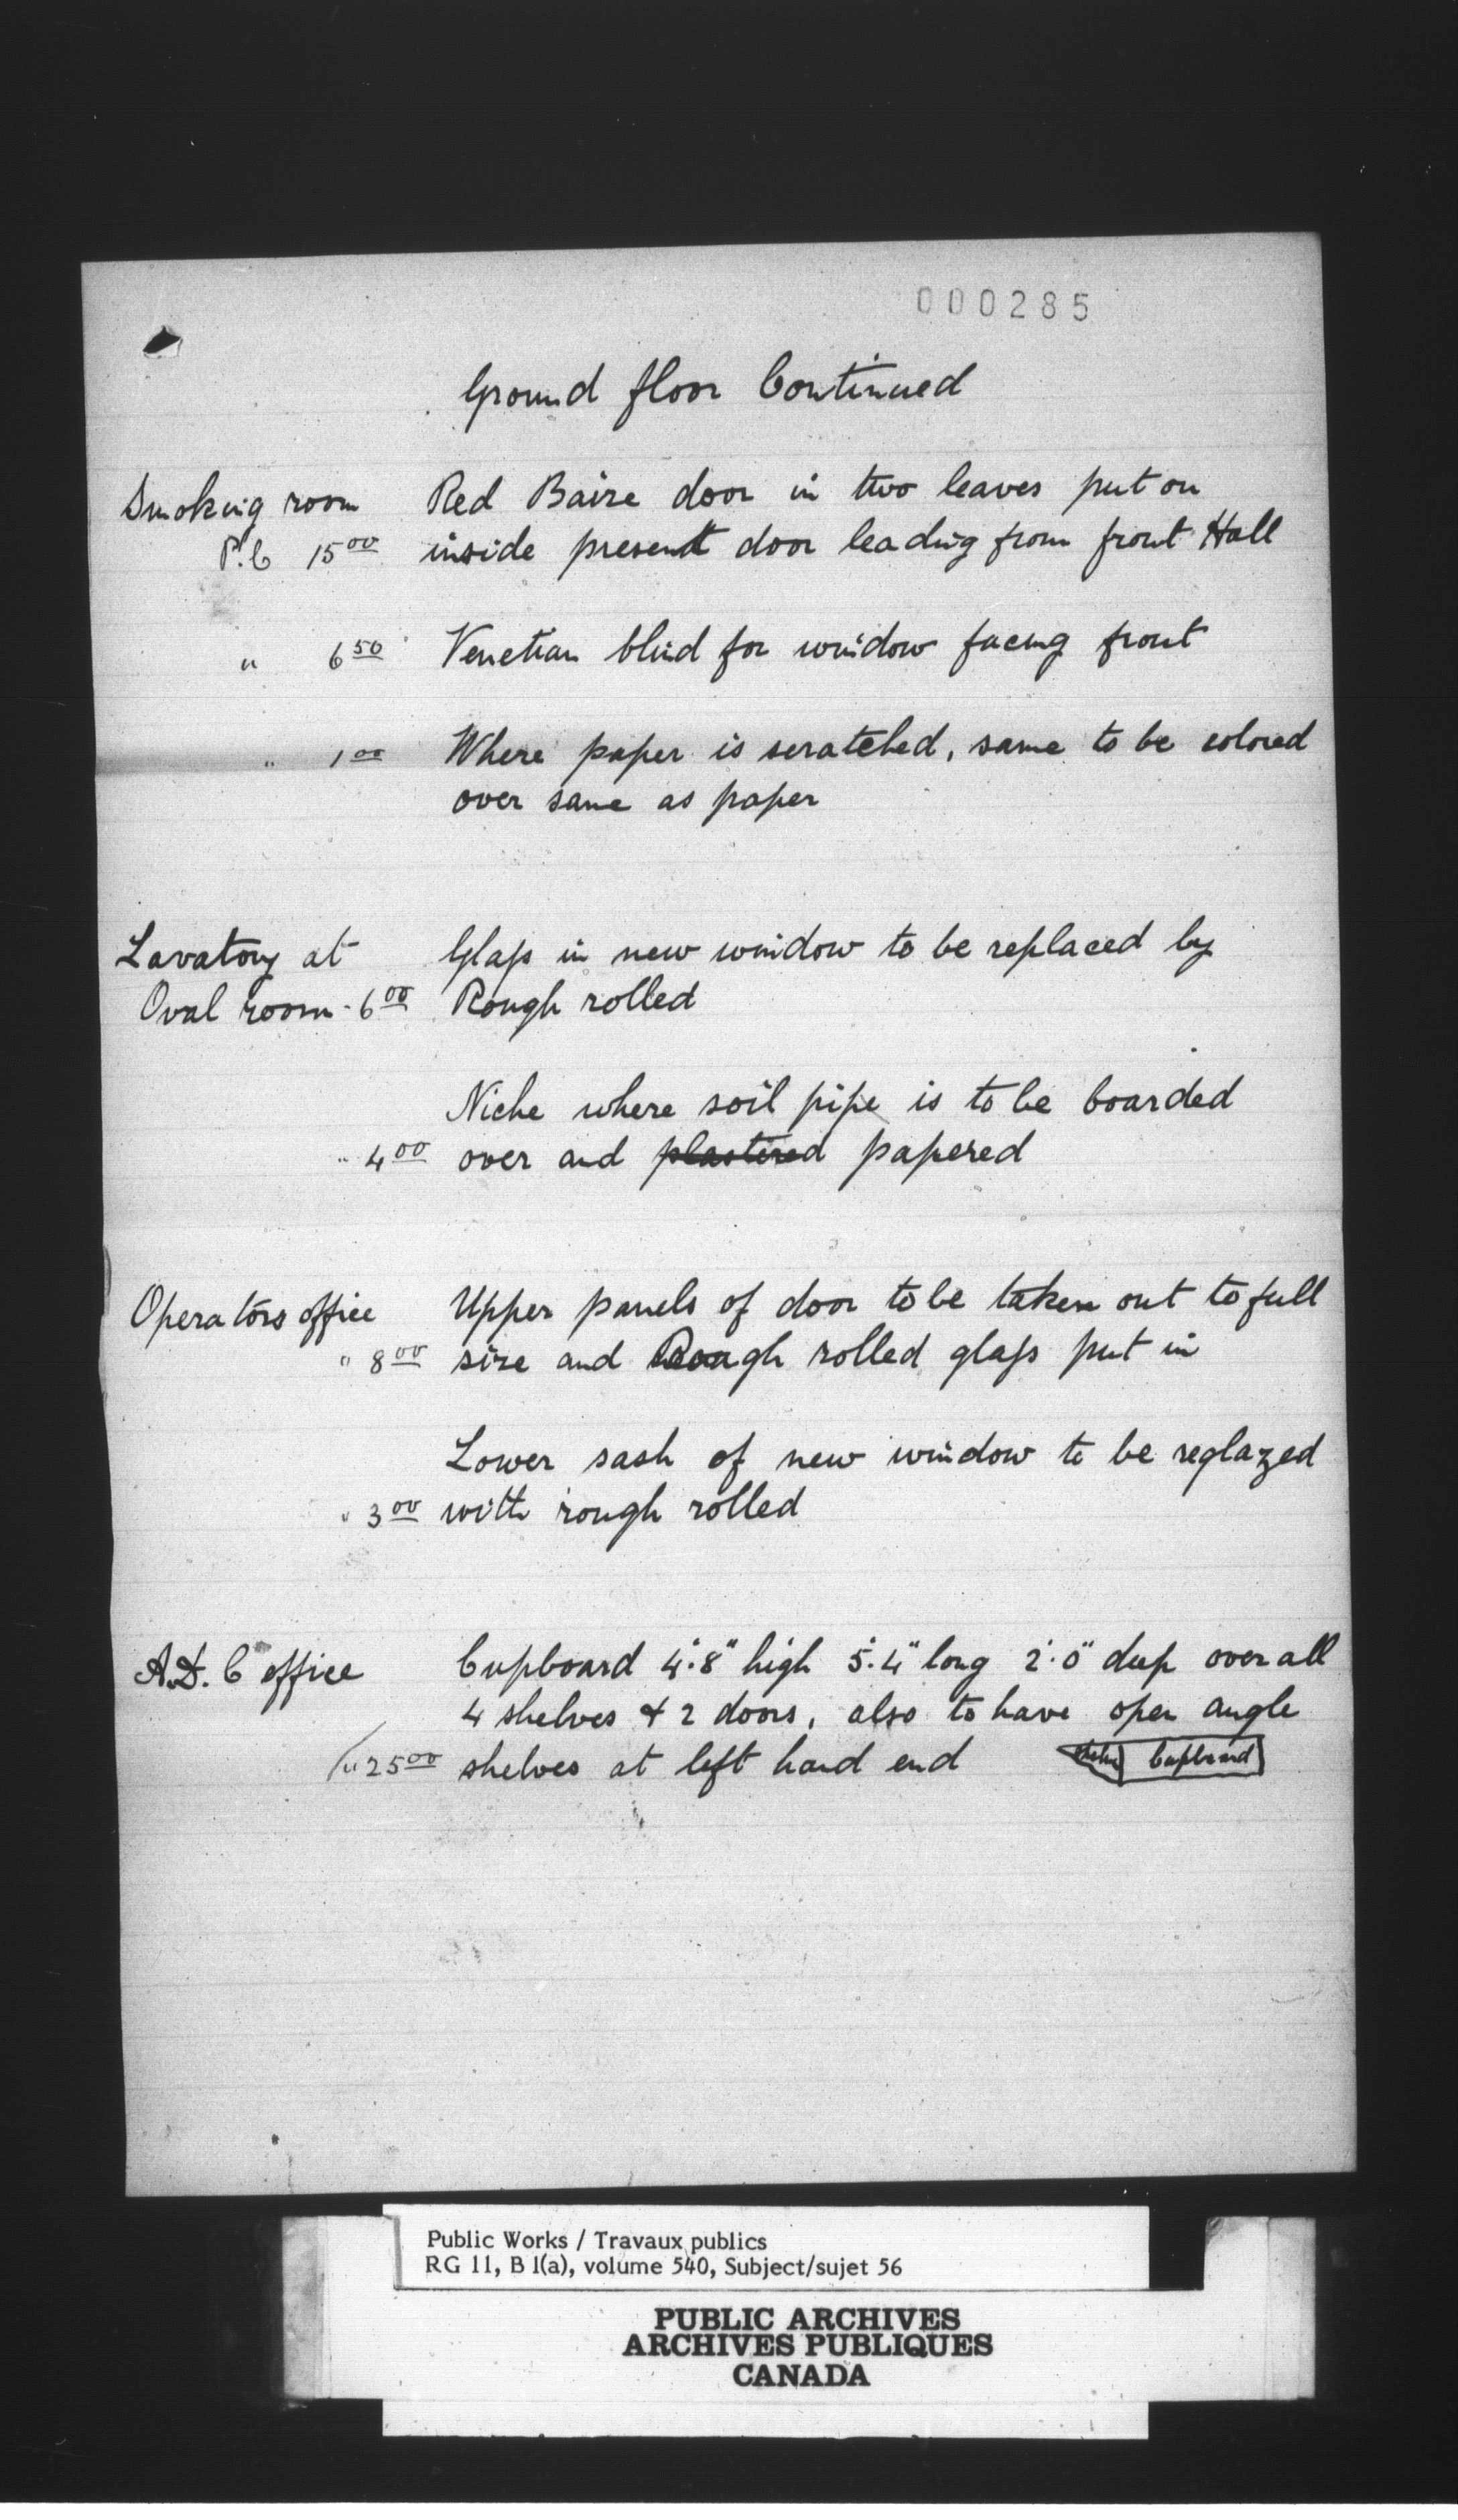 000285
Ground floor Continued
Smoking room Red Baize door in two leaves put on
P.C 15.00 inside present door leading from front Hall
" 6.50 Venetian blind for window facing front
" 1.00 Where paper is scratched, same to be colored
over same as paper
Lavatory at Glass in new window to be replaced by
Oval room - 6.00 Rough rolled
Niche where soil pipe is to be boarded
" 4.00 over and plastered papered
Operators office Upper panels of door to be taken out to full
" 8.00 size and Rough rolled glass put in
Lower sash of new window to be reglazed
" 3.00 with rough rolled
A.D.C office Cupboard 4'.8" high 5'.4" long 2'.0" deep over all
4 shelves & 2 doors, also to have open angle
" 25.00 shelves at left hand end Cupboard
Public Works / Travaux publics
RG 11, B 1(a), volume 540, Subject/sujet 56
PUBLIC ARCHIVES
ARCHIVES PUBLIQUES
CANADA